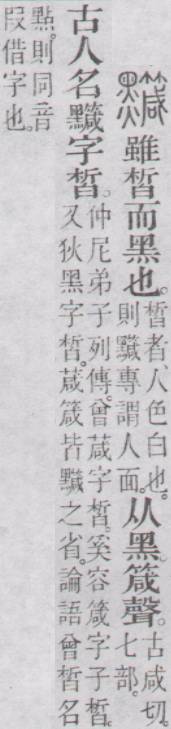 䵴雖晳而黑也。晳者、人色白也。則䵴專謂人面。从黑。箴聲。古咸切。七部。
古人名䵴字晳。仲尼弟子列傳。曾葴字晳。奚容箴字子晳。又狄黑字晳。葴箴皆䵴之省。論語曾晳名
點。則同音叚借字也。